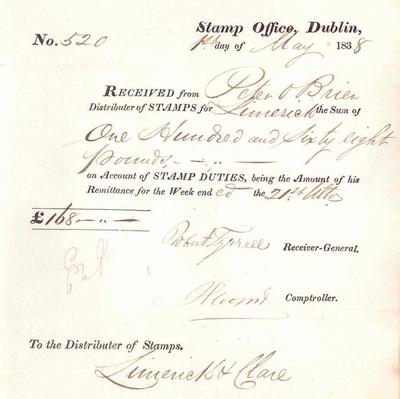 Stamp Office, Dublin,
No. 520
day of May 1838
RECEIVED from Peter O Brien
Distributer of STAMPS for Limerick the Sum of
One Hundred and Sixty eight
Pounds – " –
on Account of STAMP DUTIES, being the Amount of his
Remittance for the Week end ed the 21st Ulto
£168 – " –
Robert Tyrrell Receiver-General.
Comptroller.
To the Distributer of Stamps.
Limerick & Clare